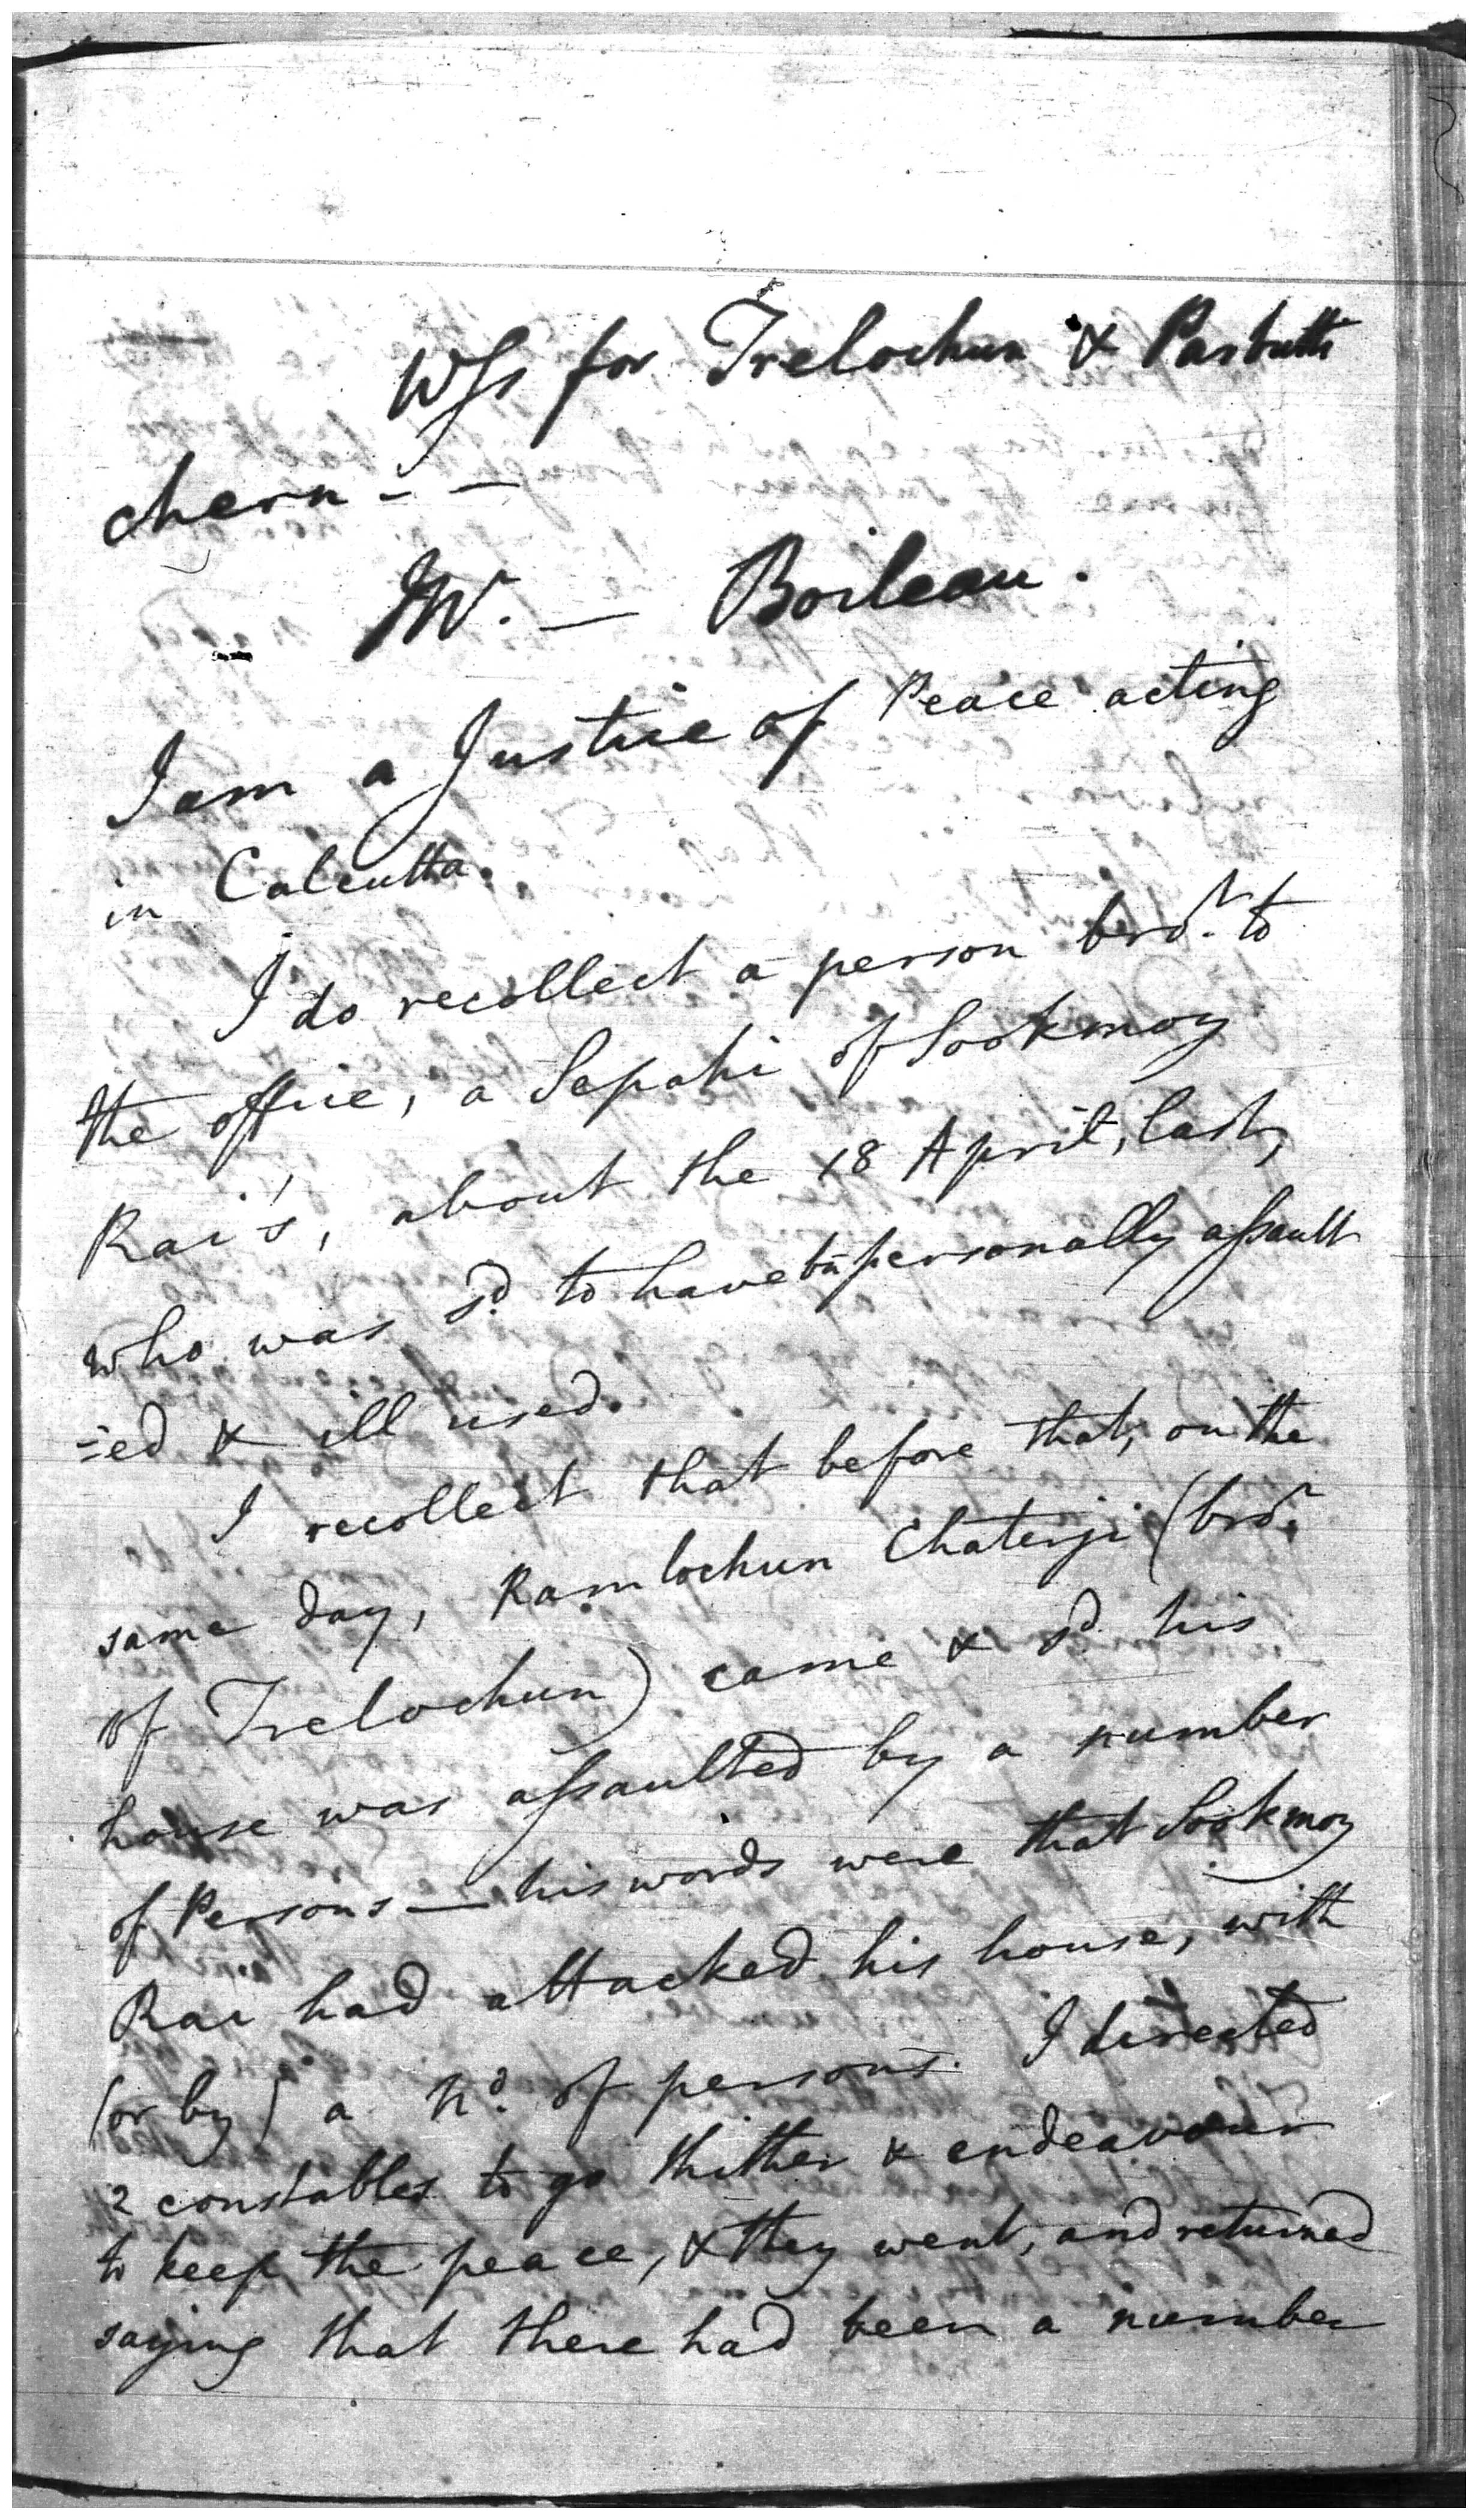 Wss for Trelochun & Parbutti
chern - -
Mr. — Boileau.
I am a Justice of Peace acting
in Calcutta.
I do recollect a person brot. to
the office, a Sepahi of Sookmoy
Rai's, about the 18 April, last,
who was sd. to have bn personally assault
=ed & ill used.
I recollect that before that, on the
same day, Ramlochun Chaterji (bror.
of Trelochun) came & sd. his
house was assaulted by a number
of Persons — his words were that Sookmoy
Rai had attacked his house, with
(or by) a No. of persons. I directed
2 constables to go thither & endeavour
to keep the peace, & they went, and returned
saying that there had been a number